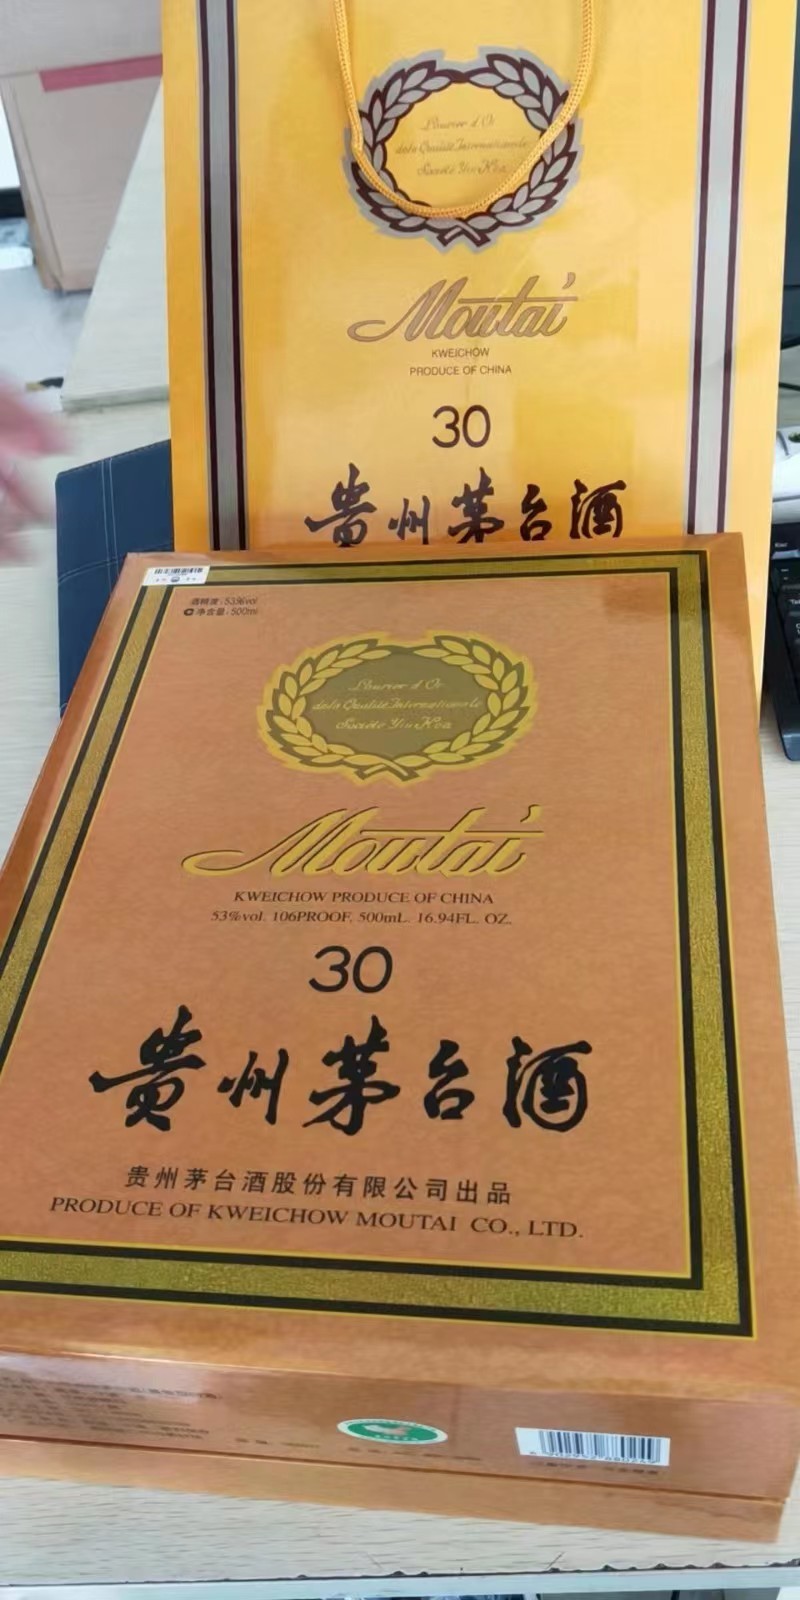 Laurier d'Or
de la Qualité Internationale
Société Yin Hoa
Moutai
KWEICHOW
PRODUCE OF CHINA
30
贵州茅台酒
酒精度:53%vol
净含量:500ml
Laurier d'Or
de la Qualité Internationale
Société Yin Hoa
Moutai
KWEICHOW PRODUCE OF CHINA
53%vol. 106PROOF. 500mL. 16.94FL. OZ.
30
贵州茅台酒
贵州茅台酒股份有限公司出品
PRODUCE OF KWEICHOW MOUTAI CO., LTD.